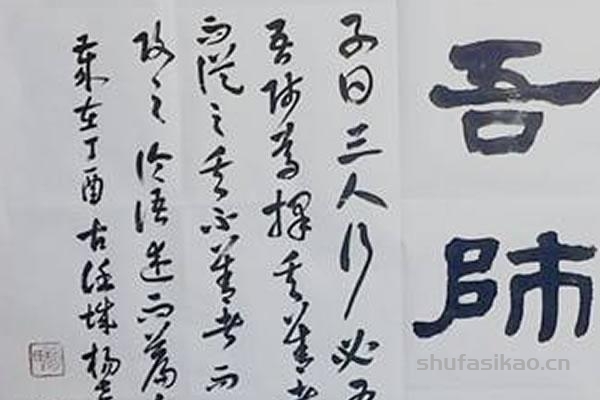 吾師
子曰三人行必
吾師焉擇其善者
而從之其不善者而
改之論語述而篇
歲在丁酉古任城楊
shufasikao.cn